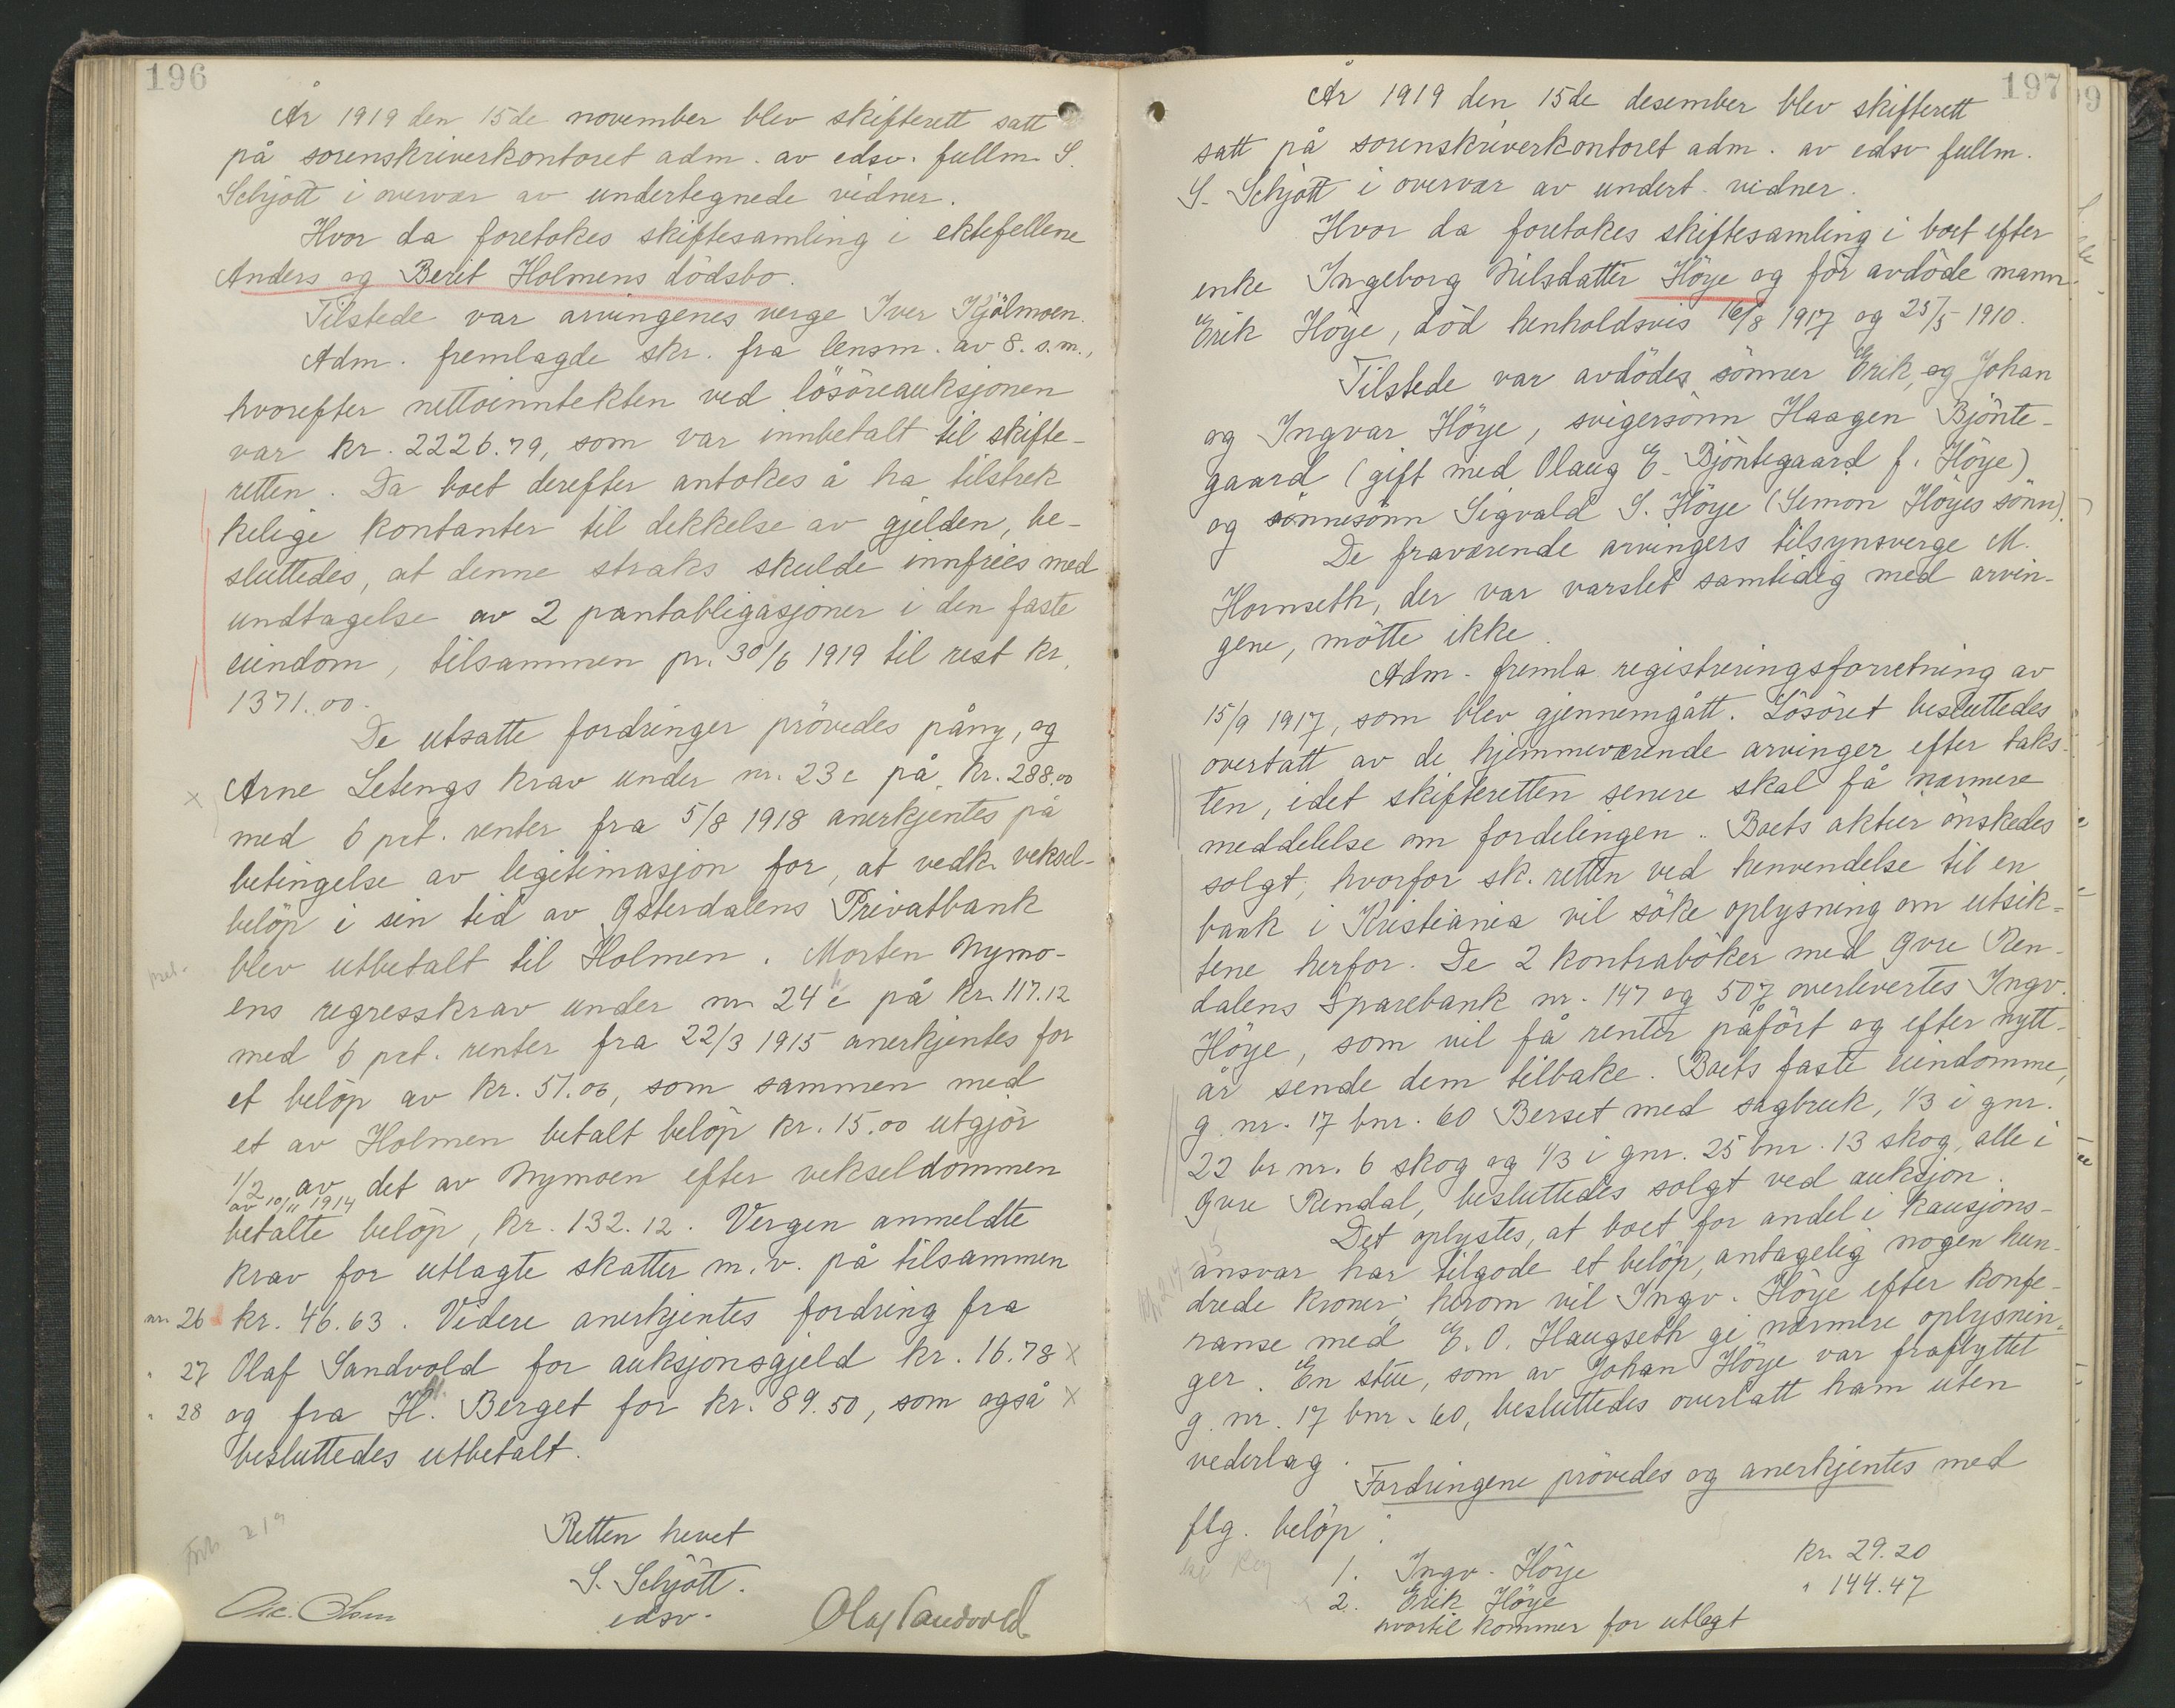 196
År 1919 den 15de november blev skifterett satt
på sorenskriverkontoret adm. av edsv. fullm. S.
Schjött i overvær av undertegnede vidner.
Hvor da foretokes skiftesamling i ektefellene
Anders og Berit Holmens dödsbo.
Tilstede var arvingenes verge Iver Kjölmoen.
Adm. fremlagde skr. fra lensm. av 8. s.m.,
hvorefter nettoinntekten ved lösöreauksjonen
var kr. 2226.79, som var innbetalt til skifte-
retten. Da boet derefter antokes å ha tilstrek
kelige kontanter til dekkelse av gjelden, be-
sluttedes, at denne straks skulde innfries med
undtagelse av 2 pantobligasjoner i den faste
eiendom, tilsammen pr. 30/6 1919 til rest kr.
1371.00.
De utsatte fordringer prövedes påny, og
x Arne Setengs krav under nr. 23 c på kr. 288.00
med 6 pct. renter fra 5/8 1918 anerkjentes på
betingelse av legitimasjon for, at vedk. veksel-
belöp i sin tid av Østerdalens Privatbank
blev utbetalt til Holmen. Morten Nymo-
ens regresskrav under nr. 24 c på kr. 117.12
med 6 pct. renter fra 22/3 1915 anerkjentes for
et belöp av kr. 51.06, som sammen med
et av Holmen betalt belöp kr. 15.00 utgjör
1/2 av det av Nymoen efter vekseldommen
av 10/11 1914
betalte belöp, kr. 132.12. Vergen anmeldte
krav for utlagte skatter m.v. på tilsammen
nr. 26 kr. 46.63. Videre anerkjentes fordring fra
" 27 Olaf Sandvold for auksjonsgjeld kr. 16.78 x
" 28 og fra H. Berget for kr. 89.50, som også x
besluttedes utbetalt.
Retten hevet
S. Schjött.
edsv.
Olsen
Olaf Sandvold
197
År 1919 den 15de desember blev skifterett
satt på sorenskriverkontoret adm. av edsv fullm.
S. Schjött i overvær av undert. vidner.
Hvor da foretokes skiftesamling i boet efter
enke Ingeborg Nilsdatter Höye og för avdöde mann
Erik Höye, död henholdsvis 16/8 1917 og 25/5 1910.
Tilstede var avdödes sönner Erik, og Johan
og Ingvar Höye, svigersönn Haagen Bjönte-
gaard (gift med Olaug E. Bjöntegaard f. Höye)
og sönnesönn Sigvald S. Höye (Simon Höyes sönn).
De fraværende arvingers tilsynsverge M.
Hornseth, der var varslet samtidig med arvin-
gene, mötte ikke.
Adm. fremla registreringsforretning av
15/9 1917, som blev gjennemgått. Lösöret besluttedes
overtatt av de hjemmeværende arvinger efter taks-
ten, idet skifteretten senere skal få nærmere
meddelelse om fordelingen. Boets aktier önskedes
solgt, hvorfor sk. retten ved henvendelse til en
bank i Kristiania vil söke oplysning om utsik-
tene herfor. De 2 kontraböker med Øvre Ren-
dalens Sparebank nr. 147 og 507 overlevertes Ingv.
Höye, som vil få renter påfört og efter nytt-
år sende dem tilbake. Boets faste eiendomme,
g. nr. 17 bnr. 60 Berset med sagbruk, 1/3 i gnr.
22 br nr. 6 skog og 1/3 i gnr. 25 bnr. 13 skog, alle i
Øvre Rendal, besluttedes solgt ved auksjon.
Det oplystes, at boet for andel i kausjons-
ansvar har tilgode et belöp, antagelig nogen hun-
drede kroner; herom vil Ingv. Höye efter konfe-
ranse med E. O. Haugseth gi nærmere oplysnin-
ger. En stue, som av Johan Höye var fraflyttet
g. nr. 17 bnr. 60, besluttedes overlatt ham uten
vederlag.
Fordringene prövedes og anerkjentes med
flg. belöp:
1. Ingv. Höye kr. 29.20
2. Erik Höye " 144.47
hvortil kommer for utlegt